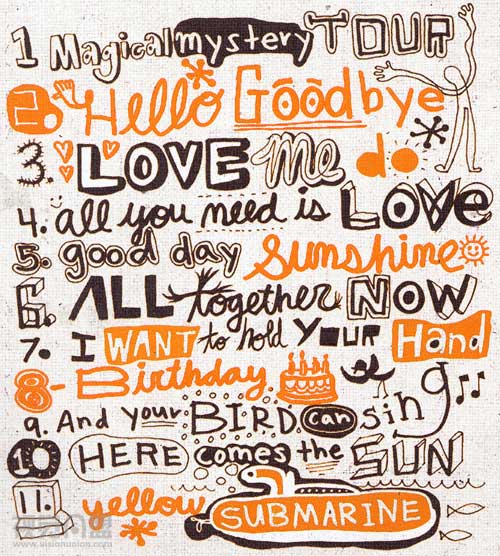 1 Magical mystery TOUR
2. Hello Goodbye
3. LOVE me do
4. all you need is LOVe
5. good day Sunshine
6. ALL together NOW
7. I WANT to hold YOUR Hand
8- Birthday
9. And your BIRD can sing
10 HERE comes the SUN
11. yellow SUBMARINE
www.visionunion.com